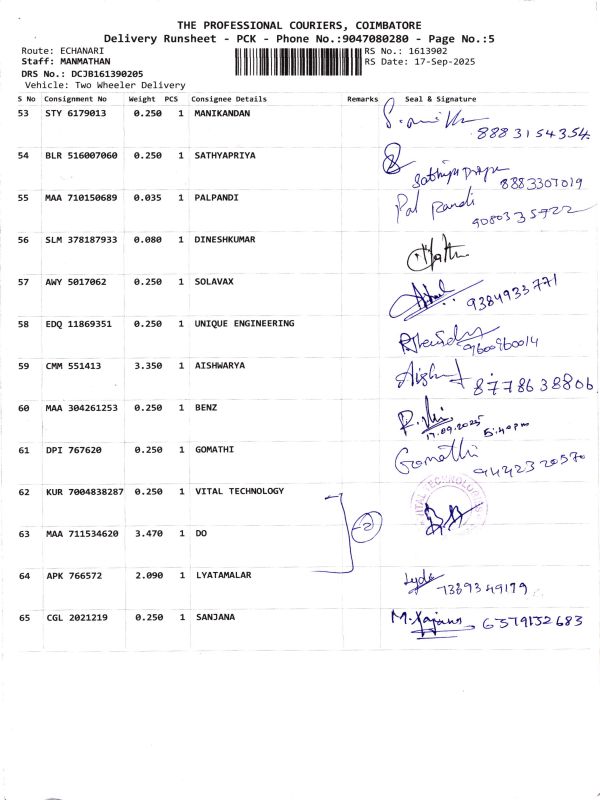 THE PROFESSIONAL COURIERS, COIMBATORE
Delivery Runsheet - PCK - Phone No.:9047080280 - Page No.:5
Route: ECHANARI RS No.: 1613902
Staff: MANMATHAN RS Date: 17-Sep-2025
DRS No.: DCJB161390205
Vehicle: Two Wheeler Delivery
S No Consignment No Weight PCS Consignee Details Remarks Seal & Signature
53 STY 6179013 0.250 1 MANIKANDAN
8883154354
54 BLR 516007060 0.250 1 SATHYAPRIYA
8883307019
55 MAA 710150689 0.035 1 PALPANDI Pal Pandi
9080335922
56 SLM 378187933 0.080 1 DINESHKUMAR
57 AWY 5017062 0.250 1 SOLAVAX 9384933771
58 EDQ 11869351 0.250 1 UNIQUE ENGINEERING
9600960014
59 CMM 551413 3.350 1 AISHWARYA
8778638806
60 MAA 304261253 0.250 1 BENZ
17.09.2025 5:40pm
61 DPI 767620 0.250 1 GOMATHI Gomathi
9442320570
62 KUR 7004838287 0.250 1 VITAL TECHNOLOGY VITAL TECHNOLOGY
2
63 MAA 711534620 3.470 1 DO
64 APK 766572 2.090 1 LYATAMALAR
7389349179
65 CGL 2021219 0.250 1 SANJANA 6379132683